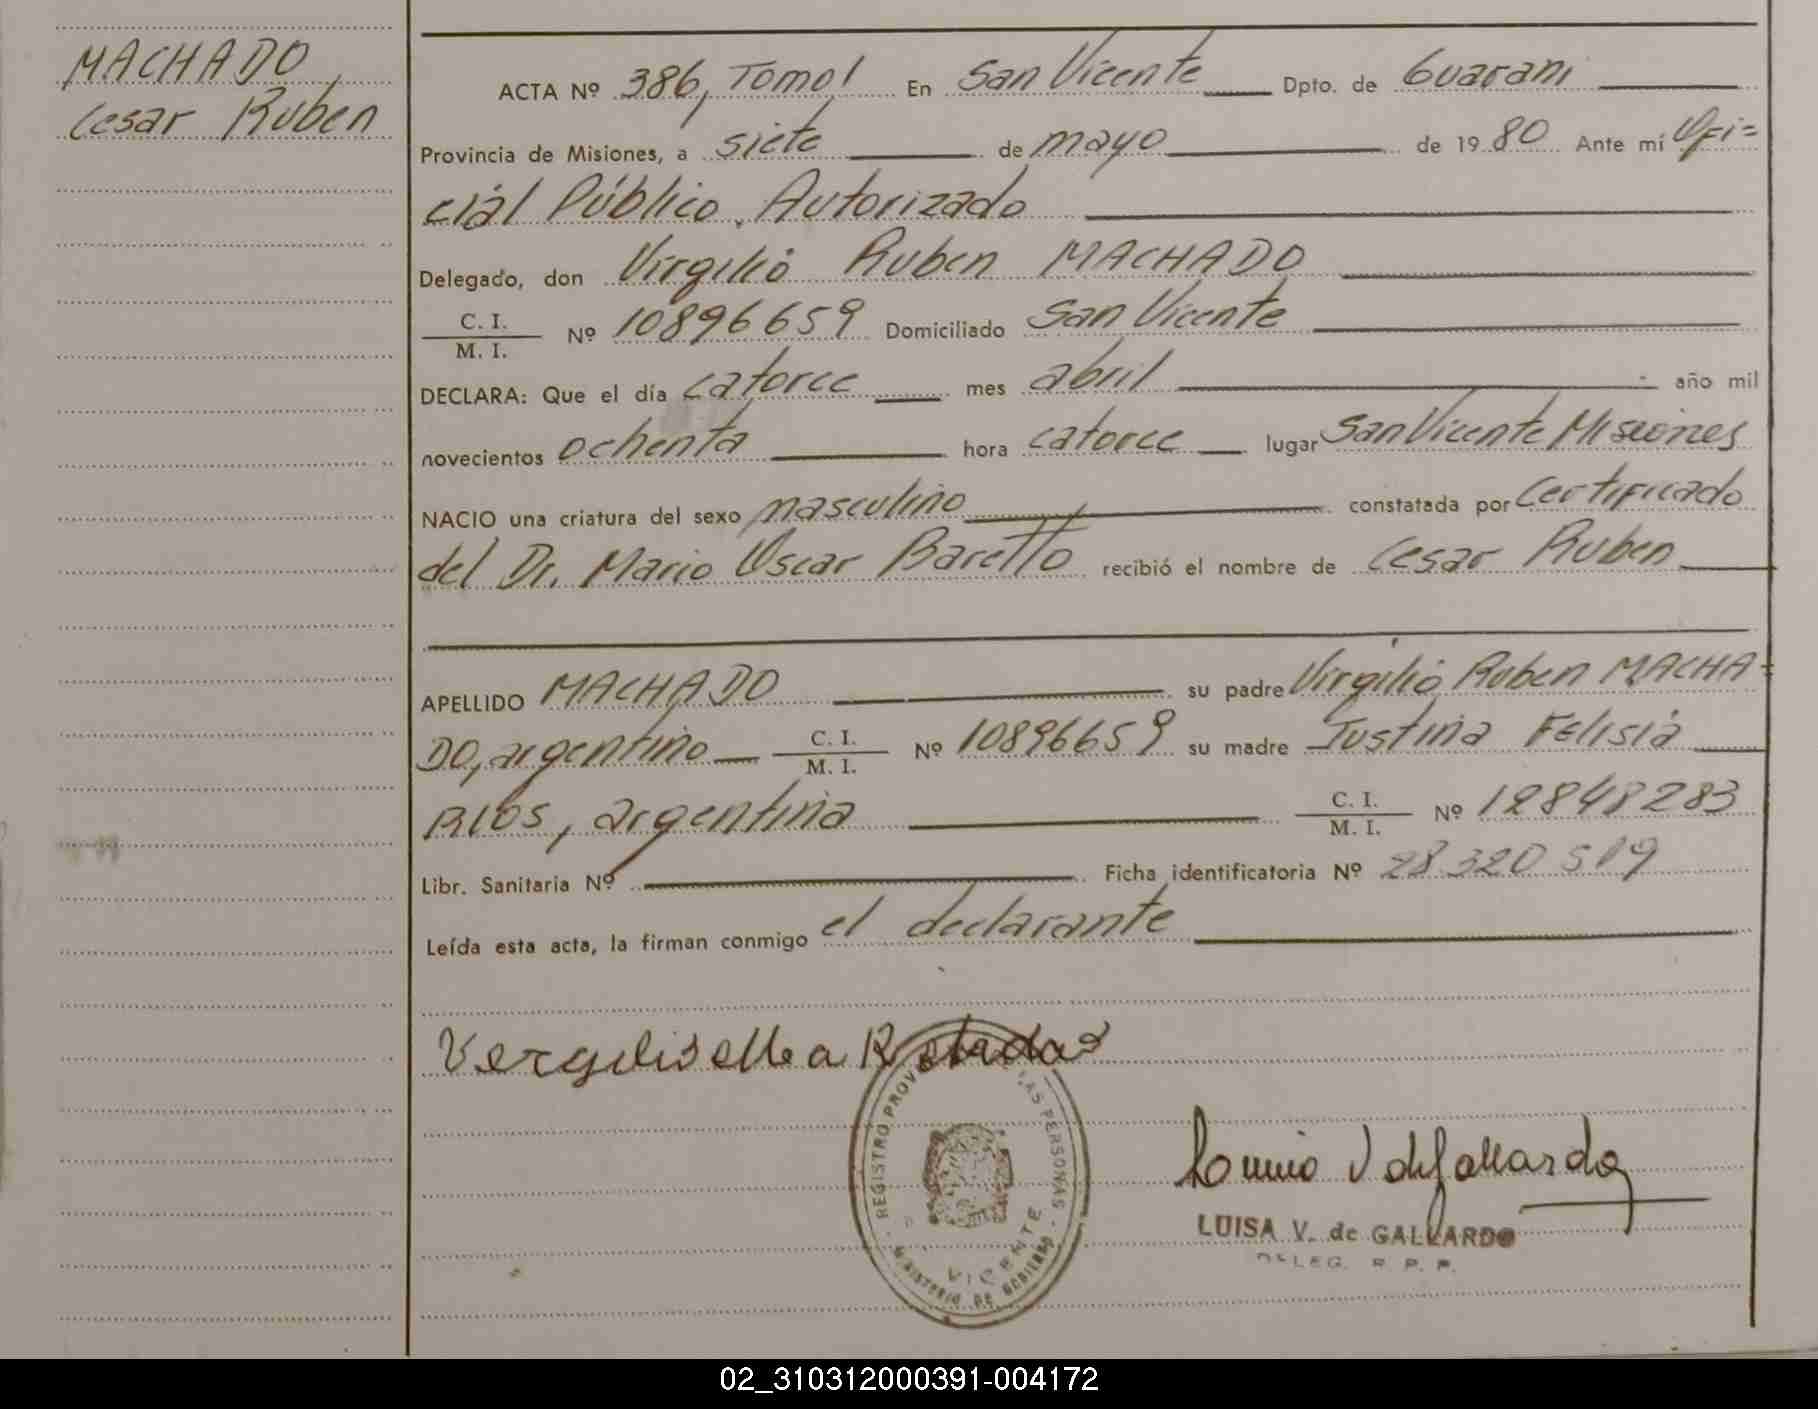 MACHADO,
Cesar Ruben
ACTA Nº 386, Tomo I En San Vicente Dpto. de Guarani
Provincia de Misiones, a siete de mayo de 1980 Ante mí Ofi=
cial Público Autorizado
Delegado, don Virgilio Ruben MACHADO
C. I.
M. I. Nº 10896659 Domiciliado San Vicente
DECLARA: Que el día catorce mes abril año mil
novecientos ochenta hora catorce lugar San Vicente Misiones
NACIO una criatura del sexo masculino constatada por Certificado
del Dr. Mario Oscar Baretto recibió el nombre de Cesar Ruben
APELLIDO MACHADO su padre Virgilio Ruben MACHA=
DO, argentino C. I. M. I. Nº 10896659 su madre Justina Felisia
RIOS, argentina C. I. M. I. Nº 12848283
Libr. Sanitaria Nº Ficha identificatoria Nº 28320519
Leída esta acta, la firman conmigo el declarante
REGISTRO PROV LAS PERSONAS
MINISTERIO DE GOBIERNO
VICENTE
LUISA V. de GALLARDO
DELEG. R. P. P.
02_310312000391-004172